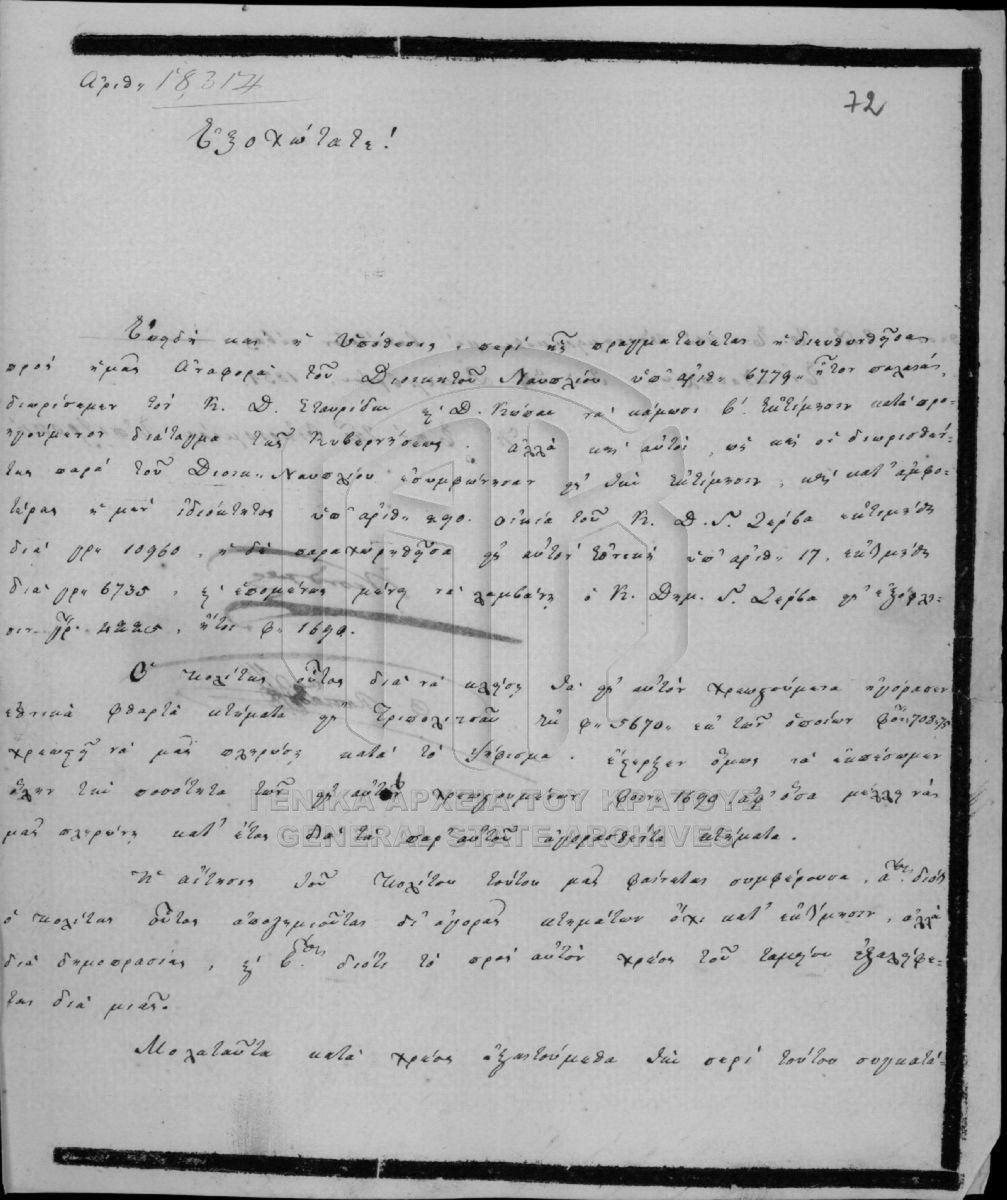 Αριθ. 18,314
72
Ἐξοχώτατε!
Ἐπειδὴ καὶ ἡ ὑπόθεσις, περὶ ἧς πραγματεύεται ἡ διευθυνθεῖσα
πρὸς ἡμᾶς ἀναφορὰ τοῦ Διοικητοῦ Ναυπλίου ὑπ' ἀριθ. 6779, ἦτον παλαιά,
διωρίσαμεν τὸν Κ. Δ. Σταυρίδην καὶ Δ. νὰ κάμωσι β'. ἐκτίμησιν κατὰ προ-
ηγούμενον διάταγμα τῆς Κυβερνήσεως. ἀλλὰ καὶ αὐτοί, ὡς καὶ οἱ διωρισθέν-
τες παρὰ τοῦ Διοικ. Ναυπλίου ἐσυμφώνησαν εἰς τὴν ἐκτίμησιν, καὶ κατ' ἀμφο-
τέρας ἡ μὲν ἰδιόκτητος ὑπ' ἀριθ. 290. οἰκία τοῦ Κ. Δ. Γ. Ζέρβα ἐκτιμήθη
διὰ γρ. 10960, ἡ δὲ παραχωρηθεῖσα εἰς αὐτὸν ἐθνικὴ ὑπ' ἀριθ. 17, ἐκτιμήθη
διὰ γρ. 6735, καὶ ἑπομένως μένει νὰ λαμβάνῃ ὁ Κ. Δημ. Γ. Ζέρβα εἰς ἐξόφλη-
σιν γρ. 4225, ἤτοι φ. 1690.
Ὁ πολίτης οὗτος διὰ νὰ κλείσῃ τὰ εἰς αὐτὸν χρεωστούμενα ἠγόρασεν
ἐθνικὰ φθαρτὰ κτήματα εἰς Τριπολιτσὰν φ. 5670, ἐκ τῶν ὁποίων
χρεωστεῖ νὰ μᾶς πληρώσῃ κατὰ τὸ ψήφισμα. ὅμως νὰ ἐκπέσωμεν
ὅλην τὴν ποσότητα τῶν εἰς αὐτὸν χρεωστουμένων φοιν. 1690 ἀφ' ὅσα μέλλει νὰ
μᾶς πληρώνῃ κατ' ἔτος διὰ τὰ παρ' αὐτοῦ ἀγορασθέντα κτήματα.
Ἡ αἴτησις τοῦ πολίτου τούτου μᾶς φαίνεται συμφέρουσα, α. διότι
ὁ πολίτης οὗτος ἀποζημιοῦται δι' ἀγορᾶς κτημάτων ὄχι κατ' ἐκτίμησιν, ἀλλὰ
διὰ δημοπρασίας, καὶ β. διότι τὸ πρὸς αὐτὸν χρέος τοῦ ταμείου ἐξαλείφε-
ται διὰ μιᾶς.
Μολαταῦτα κατὰ χρέος ἐξαιτούμεθα τὴν περὶ τούτου συγκατά-
ΓΕΝΙΚΑ ΑΡΧΕΙΑ ΤΟΥ ΚΡΑΤΟΥΣ
GENERAL STATE ARCHIVES